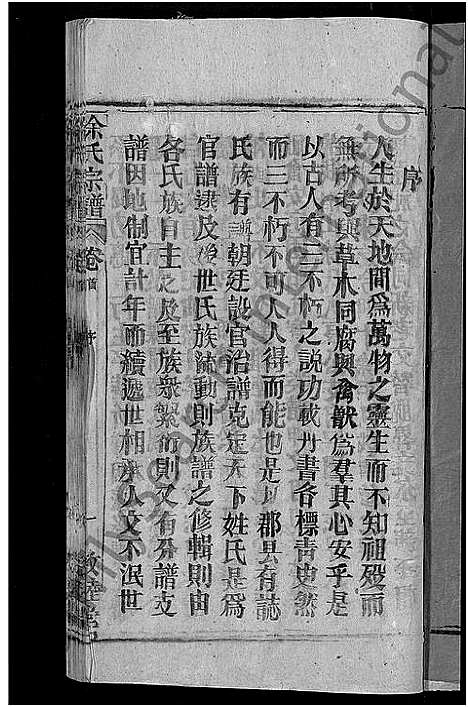 序
人生於天地間爲萬物之靈生而不知祖歿而
無所考與草木同腐與禽獸爲羣其心安乎是
以古人有三不朽之說功載丹書名標青史然
而三不朽不可人人得而能也是以郡县有誌
氏族有譜朝廷設官治譜克定天下姓氏是爲
官譜逮及後世氏族流動則族譜之修輯則由
各氏族自主之及至族衆繁衍則又有分譜支
譜因地制宜計年而續遞世相承人文不泯世
徐氏宗譜
卷首
序
一